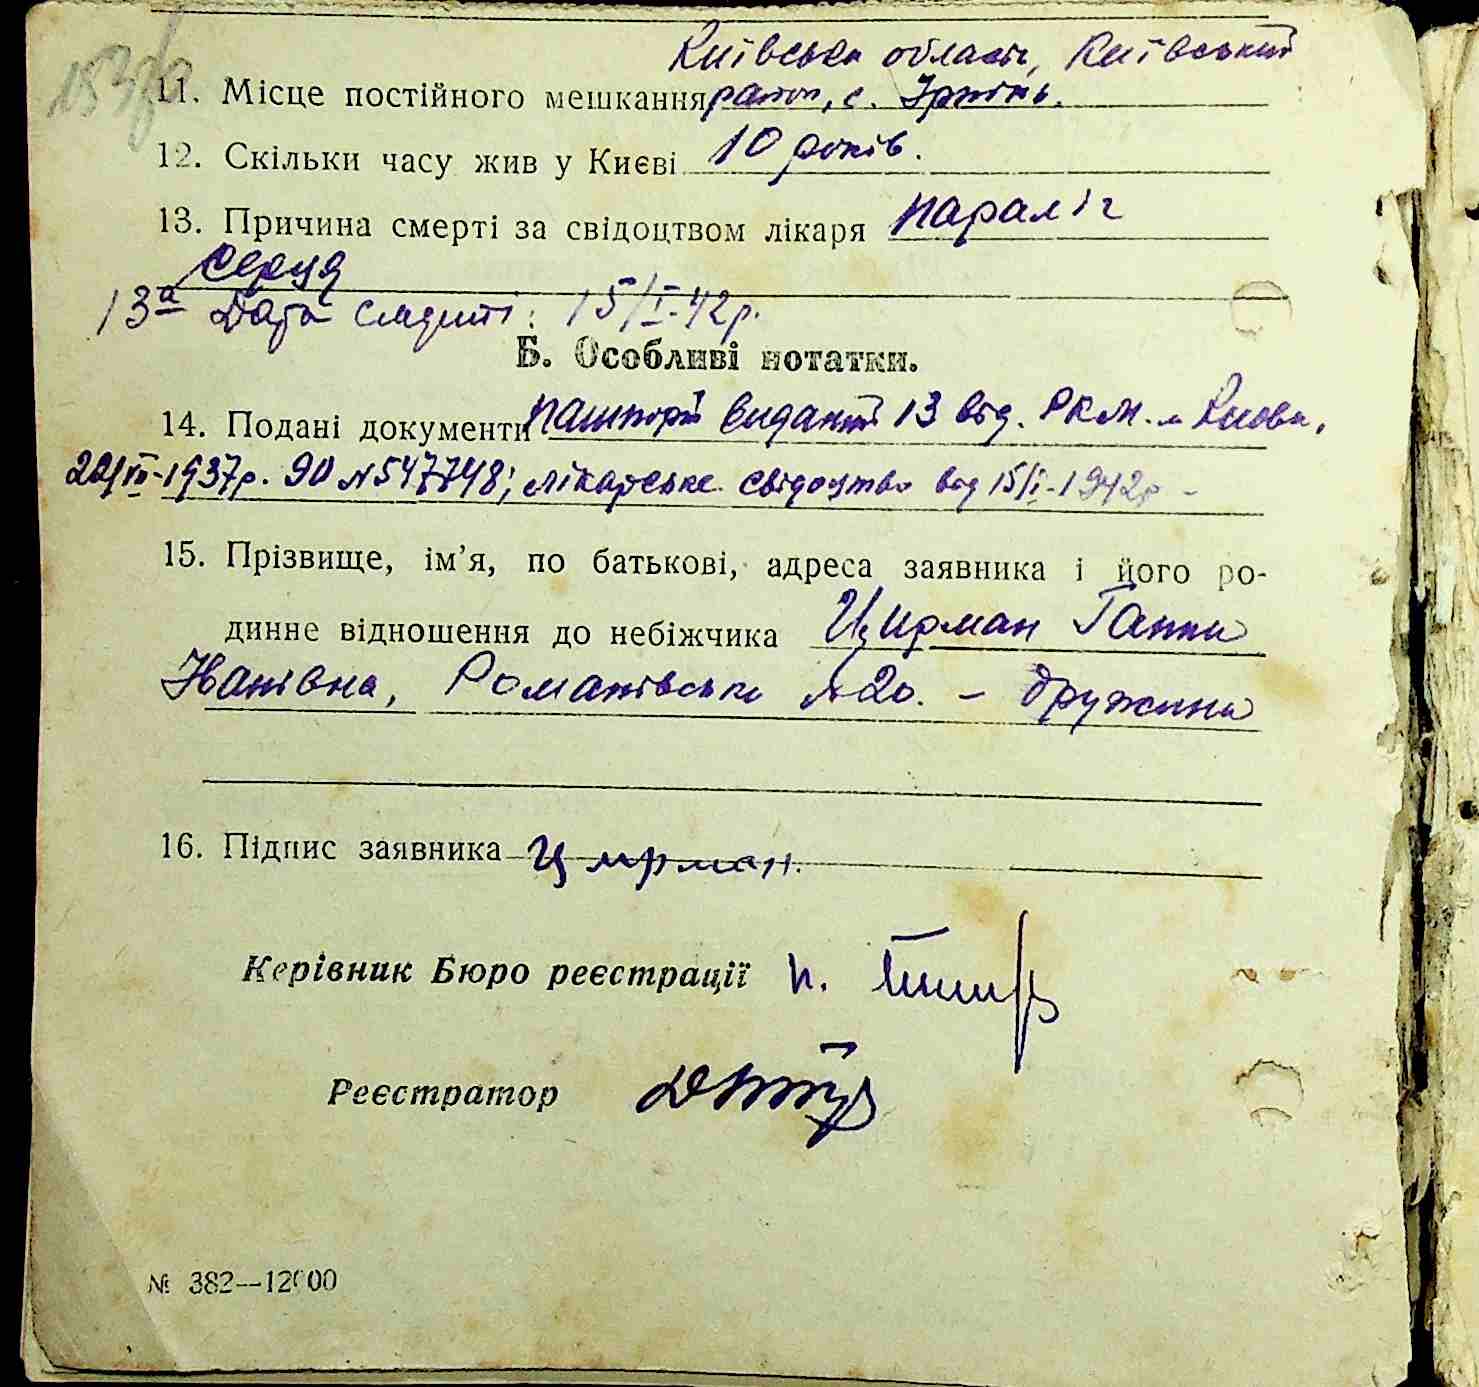 Київська область, Київський
11. Місце постійного мешкання район, с. Ірпінь.
12. Скільки часу жив у Києві 10 років.
13. Причина смерті за свідоцтвом лікаря параліч
серця
13а Дата смерті: 15/I-42р.
Б. Особливі нотатки.
14. Подані документи пашпорт виданий 13 від. РКМ. м Києва,
1937р. 90 №547748; лікарське свідоцтво від 15/I-1942р -
15. Прізвище, ім'я, по батькові, адреса заявника і його ро-
динне відношення до небіжчика Цирман Ганна
Іванівна, Романівська №20. - дружина
16. Підпис заявника Цирман.
Керівник Бюро реєстрації
Реєстратор
№ 382—12000